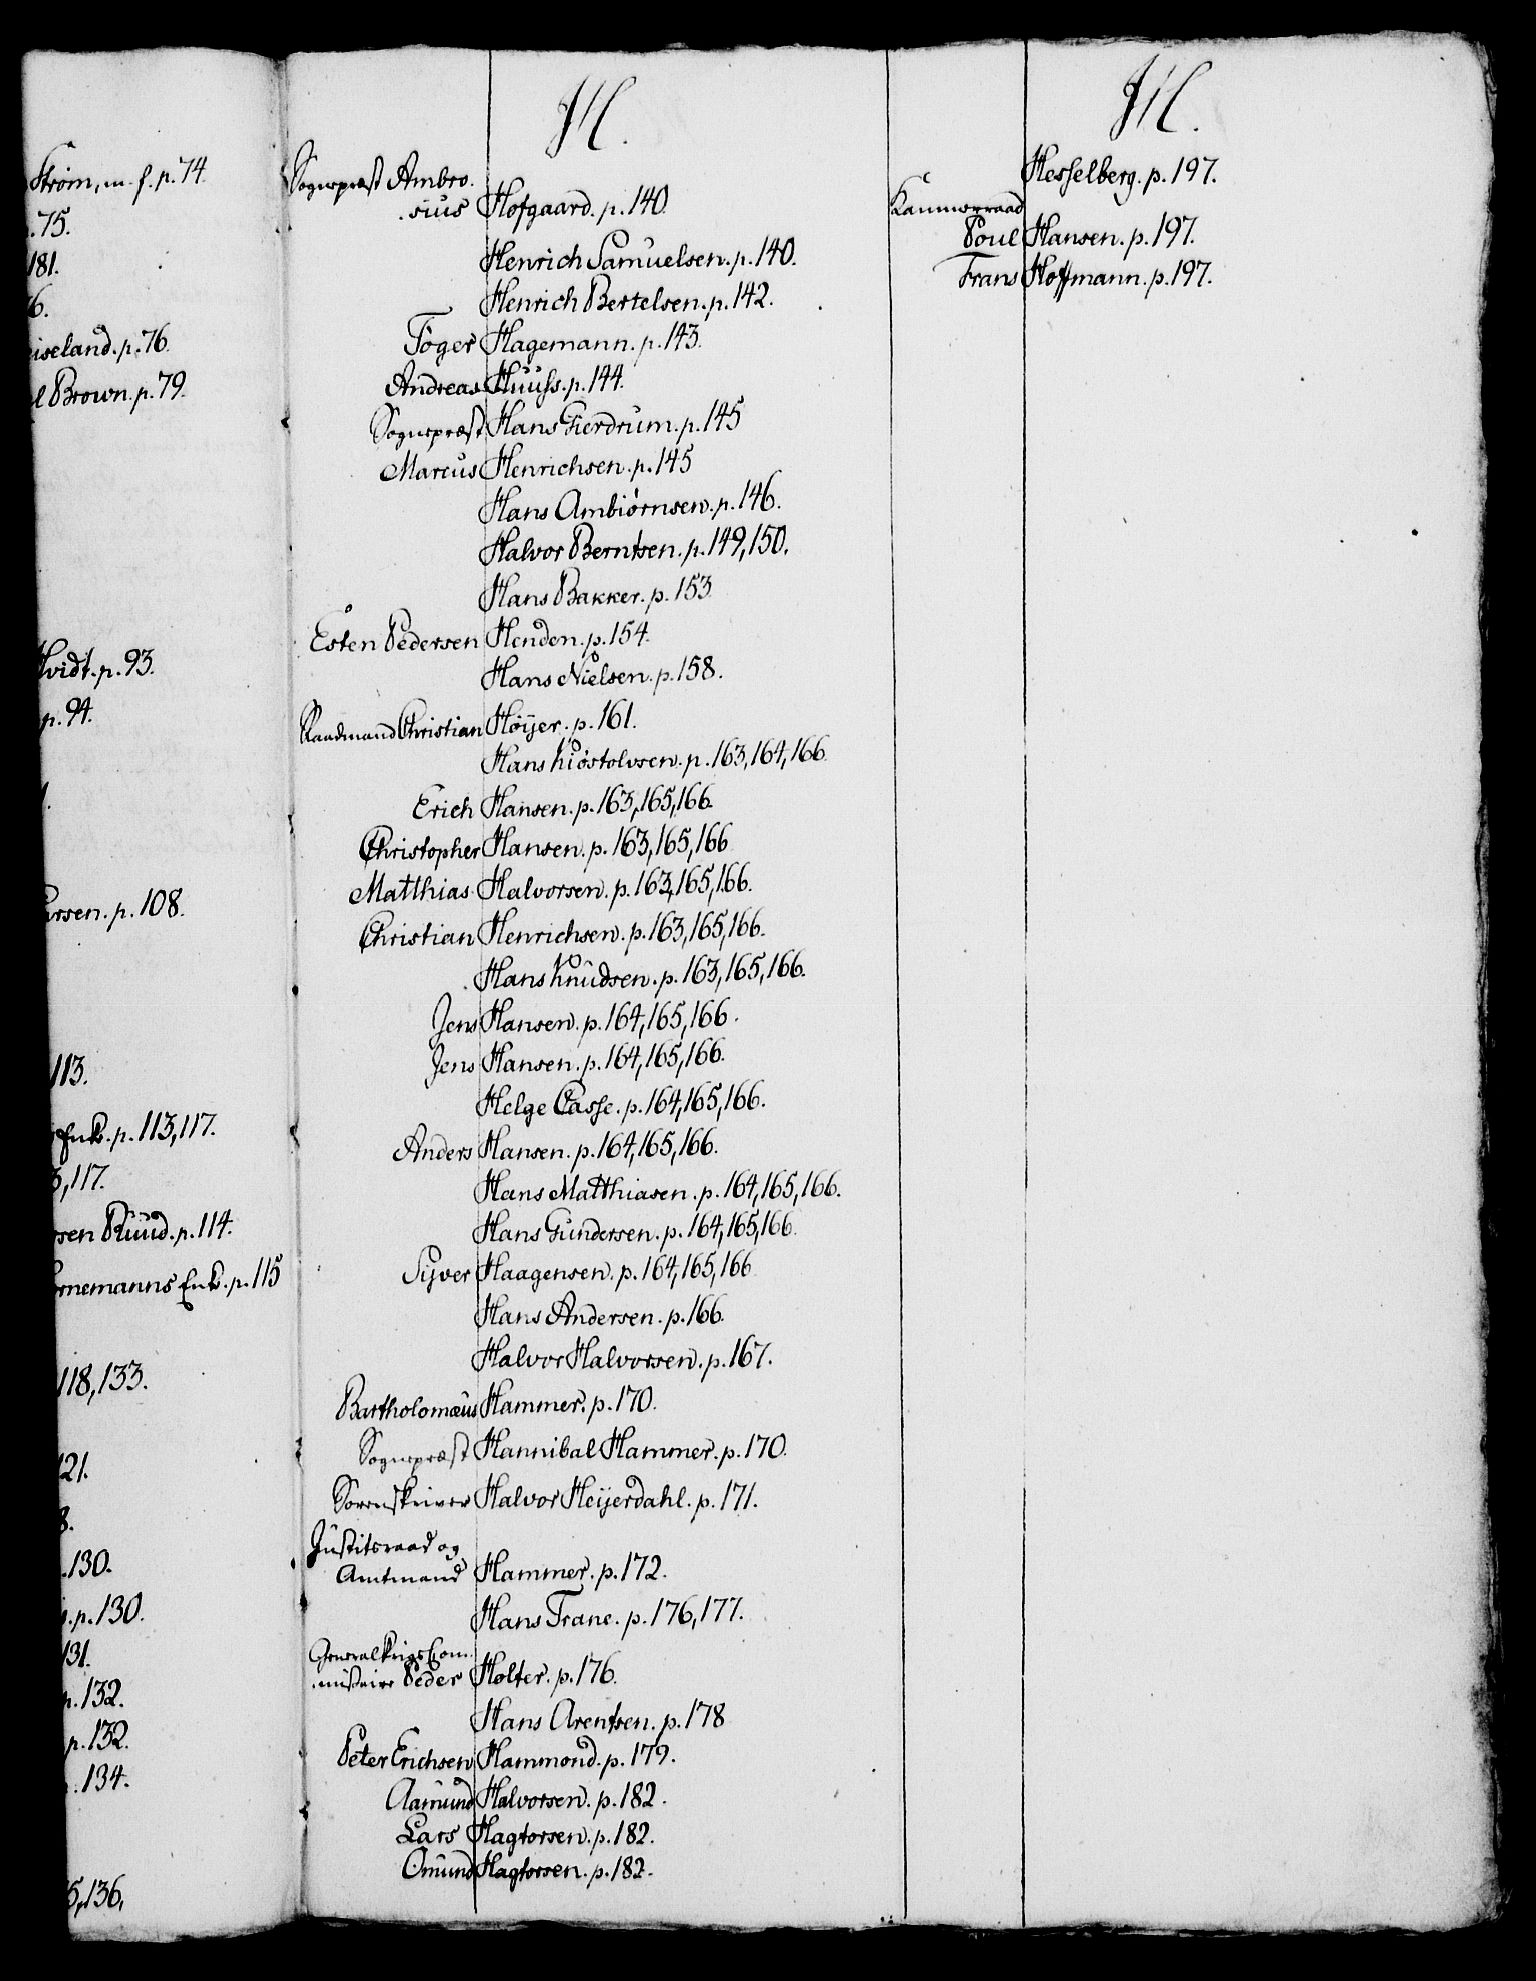 Strøm, m. f. p. 74.
. 75.
181.
6.
iseland. p. 76.
l Brown. p. 79.
Hvidt. p. 93.
p. 94.
arsen. p. 108.
113.
Enke. p. 113, 117.
3, 117.
rsen Rüüd. p. 114.
ørnemanns Enke. p. 115
118, 133.
121.
8.
. 130.
. p. 130.
131.
p. 132.
p. 132.
. 134.
5, 136,
H.
Sognepræst Ambro-
sius Hofgaard. p. 140.
Henrich Samuelsen. p. 140.
Henrich Bertelsen. p. 142.
Tøger Hagemann. p. 143.
Andreas Huuss. p. 144.
Sognepræst Hans Gierdrum. p. 145
Marcus Henrichsen. p. 145
Hans Ambiørnsen. p. 146.
Halvor Berntsen. p. 149, 150.
Hans Bakker. p. 153
Esten Pedersen Henden. p. 154.
Hans Nielsen. p. 158.
Raadmand Christian Høijer. p. 161.
Hans Kiøstolvsen. p. 163, 164, 166.
Erich Hansen. p. 163, 165, 166.
Christopher Hansen. p. 163, 165, 166
Matthias Halvorsen. p. 163, 165, 166.
Christian Henrichsen. p. 163, 165, 166.
Hans Knudsen. p. 163, 165, 166.
Jens Hansen. p. 164, 165, 166.
Jens Hansen. p. 164, 165, 166.
Helge Casse. p. 164, 165, 166.
Anders Hansen. p. 164, 165, 166.
Hans Matthiasen. p. 164, 165, 166.
Hans Gundersen. p. 164, 165, 166.
Sijver Haagensen. p. 164, 165, 166
Hans Andersen. p. 166.
Halvor Halvorsen. p. 167.
Bartholomæus Hammer. p. 170.
Sognepræst Hannibal Hammer. p. 170.
Sorenskriver Halvor Heijerdahl. p. 171.
Justitsraad og
Amtmand Hammer. p. 172.
Hans Trane. p. 176, 177.
GeneralkrigsCom-
missaire Peder Holter. p. 176.
Hans Arentsen. p. 178
Peter Erichsen Hammond. p. 179.
Aamund Halvorsen. p. 182.
Lars Hagtorsen. p. 182.
Omund Hagtorsen. p. 182.
H.
Hesselberg. p. 197.
Kammerraad
Poul Hansen. p. 197.
Frans Hoffmann. p. 197.